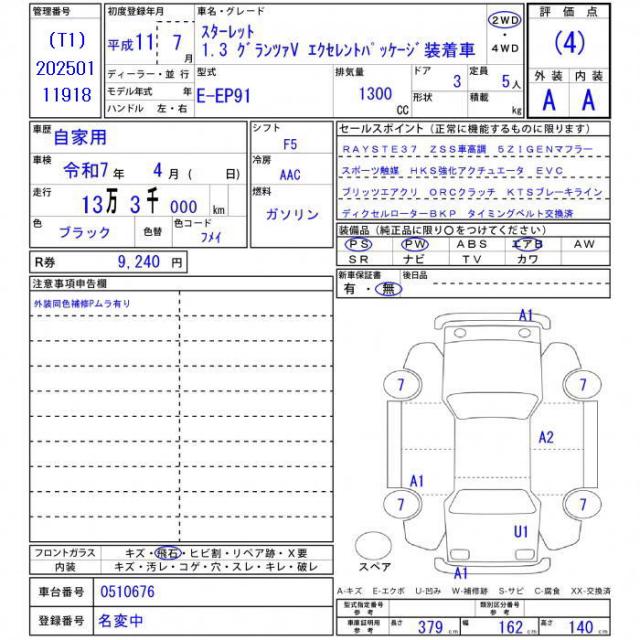 管理番号
(T1)
202501
11918
初度登録年月
平成11 7 月
ディーラー・並 行
モデル年式 年
ハンドル 左・右
車名・グレード
スターレット
1.3 グランツァV エクセレントパッケージ装着車
2WD
・
4WD
型式
E-EP91
排気量
1300
CC
ドア
3
形状
定員
5人
積載
kg
評 価 点
(4)
外 装 内 装
A A
車歴
自家用
車検
令和7年 4 月 ( 日)
走行
13万 3千 000 km
色
ブラック
色替
色コード
フメイ
シフト
F5
冷房
AAC
燃料
ガソリン
R券 9,240 円
セールスポイント (正常に機能するものに限ります)
RAYSTE37 ZSS車高調 5ZIGENマフラー
スポーツ触媒 HKS強化アクチュエータ EVC
ブリッツエアクリ ORCクラッチ KTSブレーキライン
ディクセルローターBKP タイミングベルト交換済
装備品 (純正品に限り○をつけてください)
PS PW ABS エアB AW
SR ナビ TV カワ
新車保証書
有 ・ 無
後日品
注意事項申告欄
外装同色補修Pムラ有り
A1
7
7
A2
A1
7
7
U1
スペア
A1
フロントガラス キズ・飛石・ヒビ割・リペア跡・X要
内装 キズ・汚レ・コゲ・穴・スレ・キレ・破レ
車台番号 0510676
登録番号 名変中
A-キズ E-エクボ U-凹み W-補修跡 S-サビ C-腐食 XX-交換済
型式指定番号
参 考
類別区分番号
参 考
車庫証明用
参 考
長さ 379 cm 幅 162 cm 高さ 140 cm